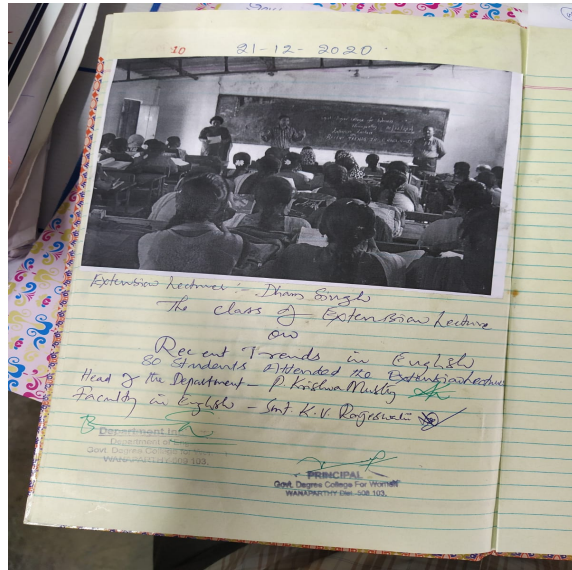 10
21-12-2020
Extension Lecturer :- Dham Singh
The class of Extension Lecture
on
Recent Trends in English
80 Students Attended the Extension Lecture
Head of the Department - P. Krishna Murthy
Faculty in English - Smt. K.V. Rageswari
Department In
Department of
Govt. Degree College
WANAPARTHY-509 103.
PRINCIPAL
Govt. Degree College For Women
WANAPARTHY Dist. 508 103.